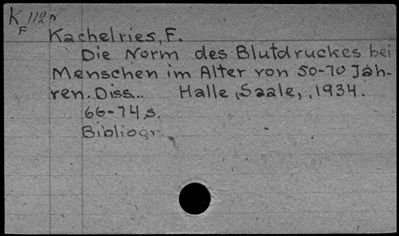 K 112 n
F
Kachelries, F.
Die Norm des Blutdruckes bei
Menschen im Alter von 50-70 Jah-
ren. Diss... Halle, Saale, 1934.
66-74 s.
Bibliogr.